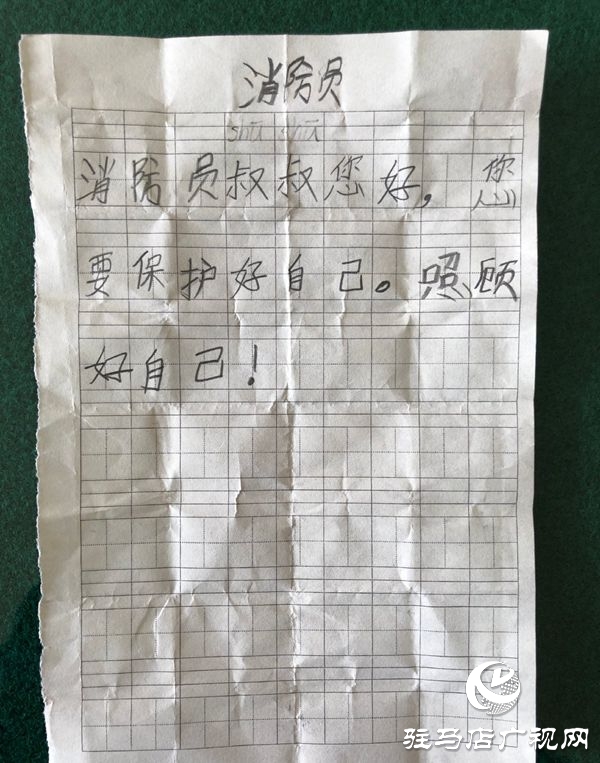 消防员
shū shū
消防员叔叔您好，您
要保护好自己。照顾
好自己！
驻马店广视网